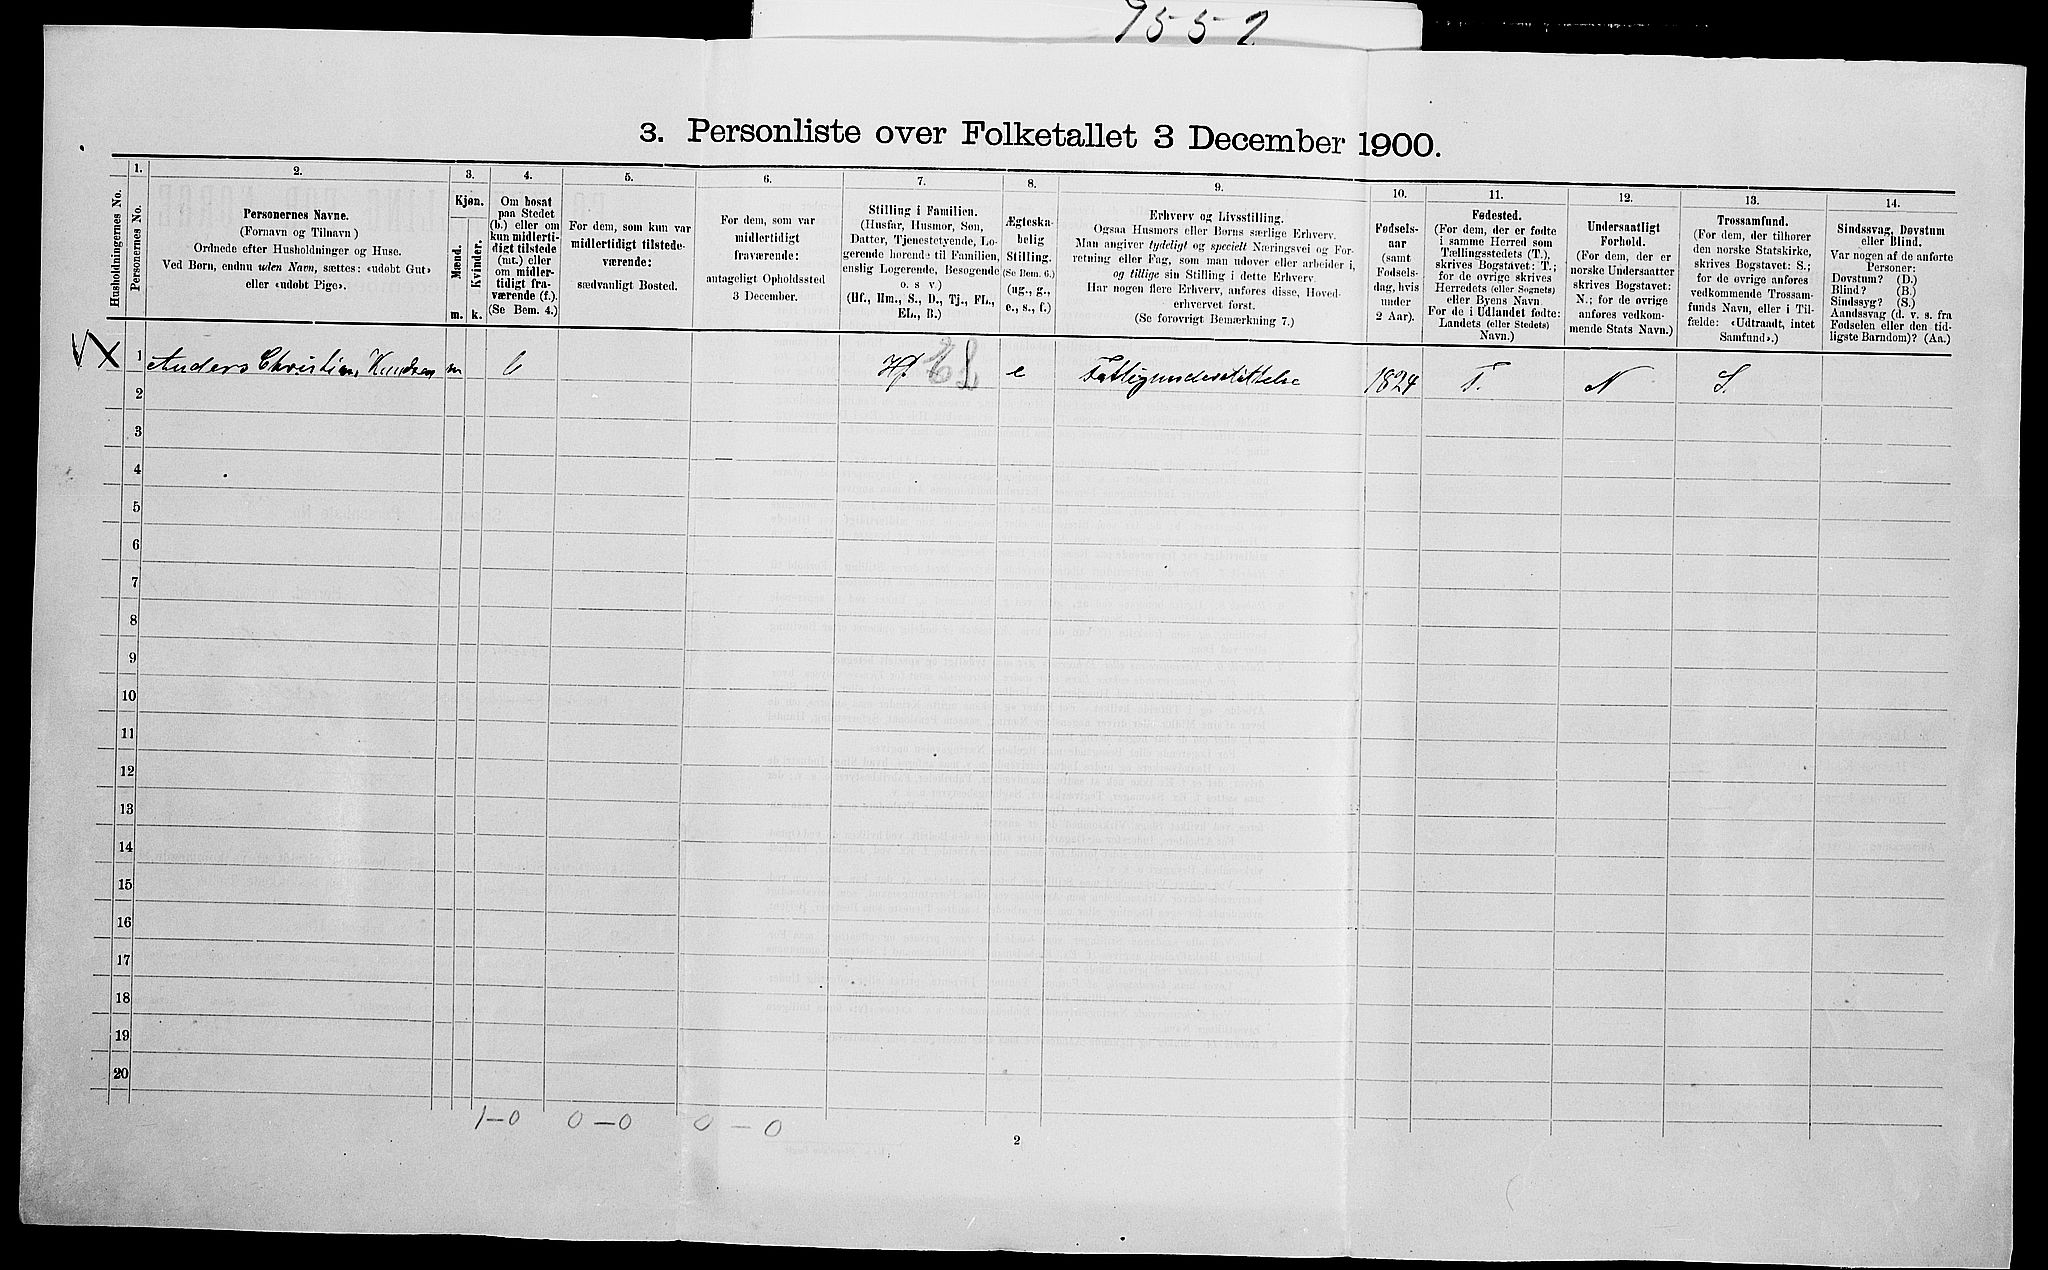 9552
3. Personliste over Folketallet 3 December 1900.
Husholdningernes No.
1.
Personernes No.
2.
Personernes Navne.
(Fornavn og Tilnavn)
Ordnede efter Husholdninger og Huse.
Ved Børn, endnu uden Navn, sættes: «udøbt Gut»
eller «udøbt Pige».
3.
Kjøn.
Mænd.
Kvinder.
m.
k.
4.
Om bosat
paa Stedet
(b.) eller om
kun midlerti-
digt tilstede
(mt.) eller
om midler-
tidigt fra-
værende (f.).
(Se Bem. 4.)
5.
For dem, som kun var
midlertidigt tilstede-
værende:
sædvanligt Bosted.
6.
For dem, som var
midlertidigt
fraværende:
antageligt Opholdssted
3 December.
7.
Stilling i Familien.
(Husfar, Husmor, Søn,
Datter, Tjenestetyende, Lo-
gerende hørende til Familien,
enslig Logerende, Besøgende
o. s v.)
(Hf., Hm., S., D., Tj., FL.,
EL., B.)
8.
Ægteska-
belig
Stilling.
(Se Bem. 6.)
(ug., g.,
e., s., f.)
9.
Erhverv og Livsstilling.
Ogsaa Husmors eller Børns særlige Erhverv.
Man angiver tydeligt og specielt Næringsvei og For-
retning eller Fag, som man udøver eller arbeider i,
og tillige sin Stilling i dette Erhverv.
Har nogen flere Erhverv, anføres disse, Hoved-
erhvervet først.
(Se forøvrigt Bemærkning 7.)
10.
Fødsels-
aar
(samt
Fødsels-
dag, hvis
under
2 Aar).
11.
Fødested.
(For dem, der er fødte
i samme Herred som
Tællingsstedets (T.),
skrives Bogstavet: T.;
for de øvrige skrives
Herredets (eller Sognets)
eller Byens Navn.
For de i Udlandet fødte:
Landets (eller Stedets)
Navn.)
12.
Undersaatligt
Forhold.
(For dem, der er
norske Undersaatter
skrives Bogstavet:
N.; for de øvrige
anføres vedkom-
mende Stats Navn.)
13.
Trossamfund.
(For dem, der tilhører
den norske Statskirke,
skrives Bogstavet: S.;
for de øvrige anføres
vedkommende Trossam-
funds Navn, eller i Til-
fælde: «Udtraadt, intet
Samfund».)
14.
Sindssvag, Døvstum
eller Blind.
Var nogen af de anførte
Personer:
Døvstum? (D.)
Blind? (B.)
Sindssyg? (S.)
Aandssvag (d. v. s. fra
Fødselen eller den tid-
ligste Barndom)? (Aa.)
X 1 Anders Christian Knudsen m b Hf EL e Fattigunderstøttelse 1824 T. N S.
2
3
4
5
6
7
8
9
10
11
12
13
14
15
16
17
18
19
20
1-0 0-0 0-0
2